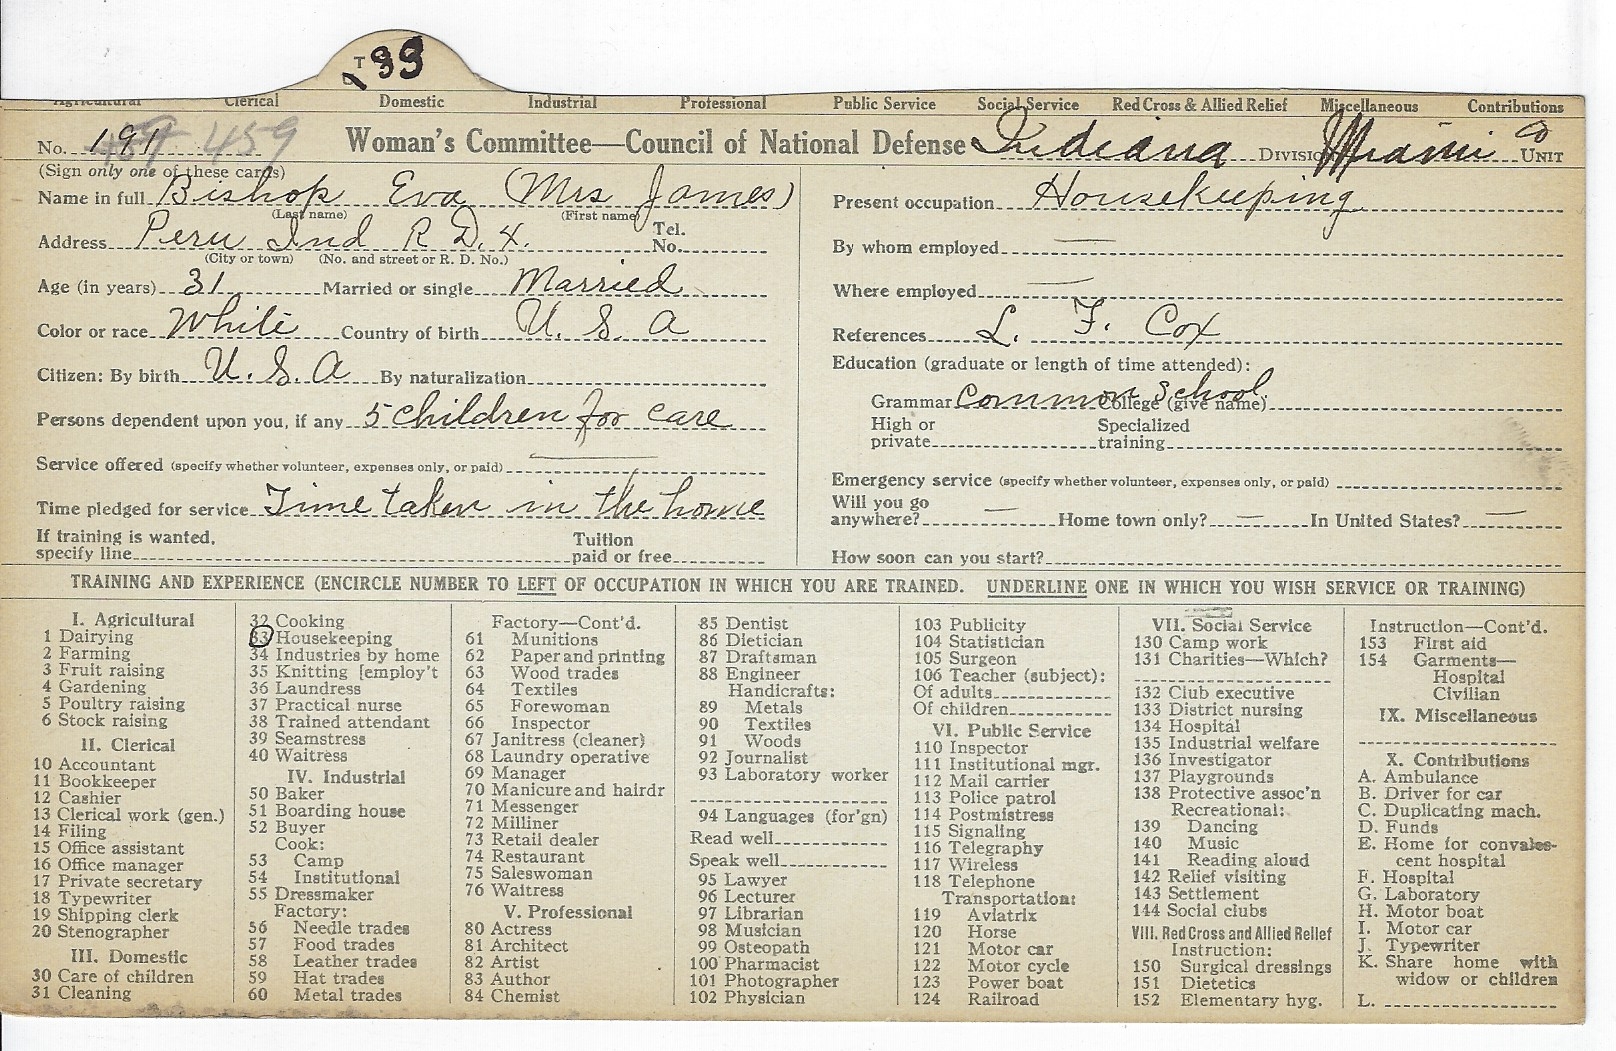 T
133
Agricultural Clerical Domestic Industrial Professional Public Service Social Service Red Cross & Allied Relief Miscellaneous Contributions
No. 191 459 Woman's Committee—Council of National Defense Indiana Division Miami Co Unit
(Sign only one of these cards)
Name in full Bishop Eva (Mrs James)
(Last name) (First name)
Address Peru Ind R D. 4. Tel. No.
(City or town) (No. and street or R. D. No.)
Age (in years) 31 Married or single Married
Color or race White Country of birth U. S. A
Citizen: By birth U. S. A By naturalization
Persons dependent upon you, if any 5 children for care
Service offered (specify whether volunteer, expenses only, or paid)
Time pledged for service Time taken in the home
If training is wanted, specify line Tuition paid or free
Present occupation Housekeeping
By whom employed —
Where employed —
References L. F. Cox
Education (graduate or length of time attended):
Grammar Common School. College (give name)
High or private Specialized training
Emergency service (specify whether volunteer, expenses only, or paid)
Will you go anywhere? — Home town only? — In United States? —
How soon can you start?
TRAINING AND EXPERIENCE (ENCIRCLE NUMBER TO LEFT OF OCCUPATION IN WHICH YOU ARE TRAINED. UNDERLINE ONE IN WHICH YOU WISH SERVICE OR TRAINING)
I. Agricultural
1 Dairying
2 Farming
3 Fruit raising
4 Gardening
5 Poultry raising
6 Stock raising
II. Clerical
10 Accountant
11 Bookkeeper
12 Cashier
13 Clerical work (gen.)
14 Filing
15 Office assistant
16 Office manager
17 Private secretary
18 Typewriter
19 Shipping clerk
20 Stenographer
III. Domestic
30 Care of children
31 Cleaning
32 Cooking
33 Housekeeping
34 Industries by home
35 Knitting [employ't
36 Laundress
37 Practical nurse
38 Trained attendant
39 Seamstress
40 Waitress
IV. Industrial
50 Baker
51 Boarding house
52 Buyer
Cook:
53 Camp
54 Institutional
55 Dressmaker
Factory:
56 Needle trades
57 Food trades
58 Leather trades
59 Hat trades
60 Metal trades
Factory—Cont'd.
61 Munitions
62 Paper and printing
63 Wood trades
64 Textiles
65 Forewoman
66 Inspector
67 Janitress (cleaner)
68 Laundry operative
69 Manager
70 Manicure and hairdr
71 Messenger
72 Milliner
73 Retail dealer
74 Restaurant
75 Saleswoman
76 Waitress
V. Professional
80 Actress
81 Architect
82 Artist
83 Author
84 Chemist
85 Dentist
86 Dietician
87 Draftsman
88 Engineer
Handicrafts:
89 Metals
90 Textiles
91 Woods
92 Journalist
93 Laboratory worker
94 Languages (for'gn)
Read well
Speak well
95 Lawyer
96 Lecturer
97 Librarian
98 Musician
99 Osteopath
100 Pharmacist
101 Photographer
102 Physician
103 Publicity
104 Statistician
105 Surgeon
106 Teacher (subject):
Of adults
Of children
VI. Public Service
110 Inspector
111 Institutional mgr.
112 Mail carrier
113 Police patrol
114 Postmistress
115 Signaling
116 Telegraphy
117 Wireless
118 Telephone
Transportation:
119 Aviatrix
120 Horse
121 Motor car
122 Motor cycle
123 Power boat
124 Railroad
VII. Social Service
130 Camp work
131 Charities—Which?
132 Club executive
133 District nursing
134 Hospital
135 Industrial welfare
136 Investigator
137 Playgrounds
138 Protective assoc'n
Recreational:
139 Dancing
140 Music
141 Reading aloud
142 Relief visiting
143 Settlement
144 Social clubs
VIII. Red Cross and Allied Relief
Instruction:
150 Surgical dressings
151 Dietetics
152 Elementary hyg.
Instruction—Cont'd.
153 First aid
154 Garments—
Hospital
Civilian
IX. Miscellaneous
X. Contributions
A. Ambulance
B. Driver for car
C. Duplicating mach.
D. Funds
E. Home for convales-
cent hospital
F. Hospital
G. Laboratory
H. Motor boat
I. Motor car
J. Typewriter
K. Share home with
widow or children
L.